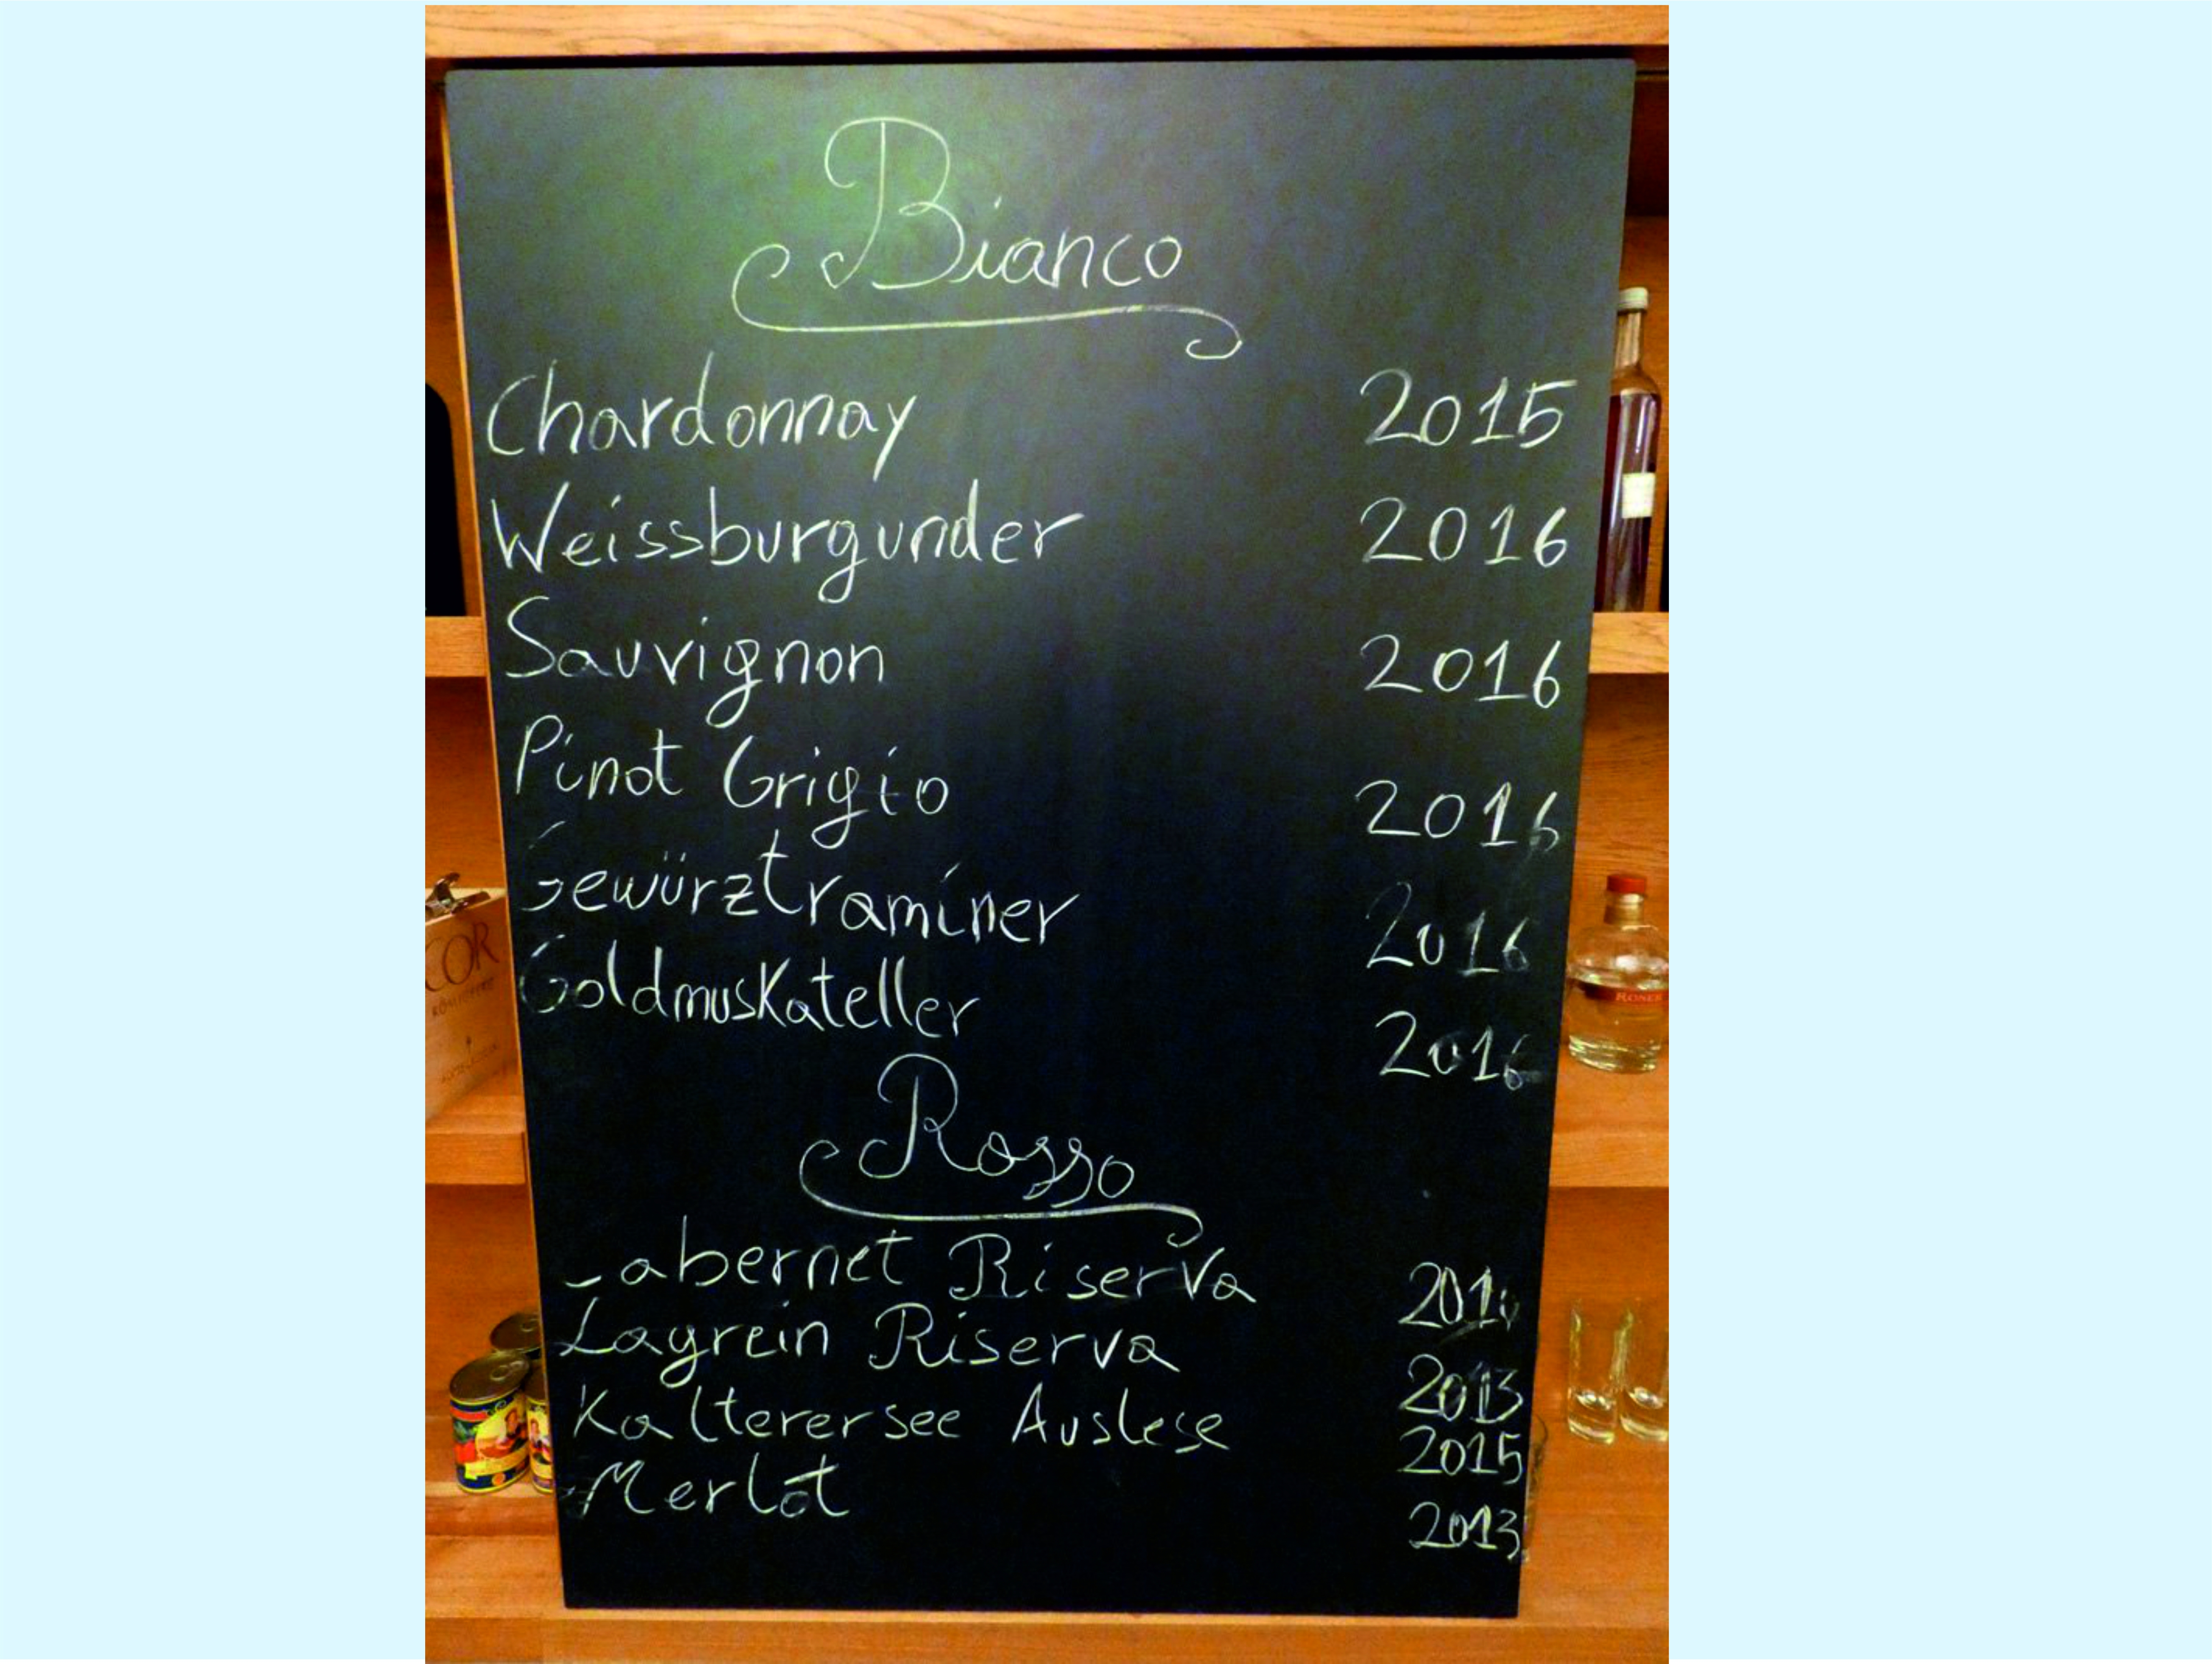 Bianco
Chardonnay 2015
Weissburgunder 2016
Sauvignon 2016
Pinot Grigio 2016
Gewürztraminer 2016
Goldmuskateller 2016
Rosso
Cabernet Riserva
Lagrein Riserva 2013
Kalterersee Auslese 2015
Merlot 2013
COR
RÖMIGBERG
RONER